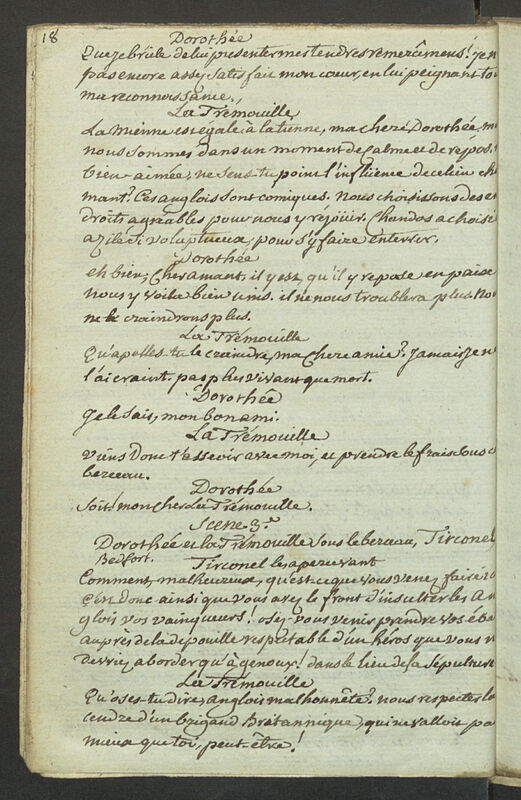 18
Dorothée
Que je brûle de lui presenter mes tendres remercîmens! je n
pas encore assez satisfait mon cœur, en lui peignant to
ma reconnoissance.
La Trémouille
La mienne est égale à la tienne, ma chere Dorothée, m
nous sommes dans un moment de calme et de repos.
bien-aimée, ne sens-tu point l'influence de celui ch
mant? Ces anglois sont comiques. Nous choisissons des en
droits agréables pour nous y réjouir. Chandos a choisi
azile si voluptueux, pour s'y faire enterrer.
Dorothée
eh bien; cher amant, il y est, qu'il y repose en paix
nous y voilà bien unis. il ne nous troublera plus. No
ne le craindrons plus.
La Trémouille
Qu'apelles-tu le craindre, ma chere amie? Jamais je n
l'ai craint. pas plus vivant que mort.
Dorothée
Je le sais, mon bon ami.
La Trémouille
Viens donc t'asseoir avec moi, et prendre le frais sous c
berceau.
Dorothée
Soit! mon cher La Trémouille.
Scene 3.e
Dorothée et La Trémouille sous le berceau, Tirconel
Bedfort.
Tirconel les apercevant
Comment, malheureux, qu'est-ce que vous venez faire ici
C'est donc ainsi que vous avez le front d'insulter les An
glois vos vainqueurs! osez-vous venir prendre vos éba
auprès de la dépouille respectable d'un héros que vous n
devriez aborder qu'à genoux! dans le lieu de sa sépulture
La Trémouille
Qu'oses-tu dire, anglois malhonnête? nous respectes la
cendre d'un brigand Britannique, qui ne valloit pa
mieux que toi, peut-être!